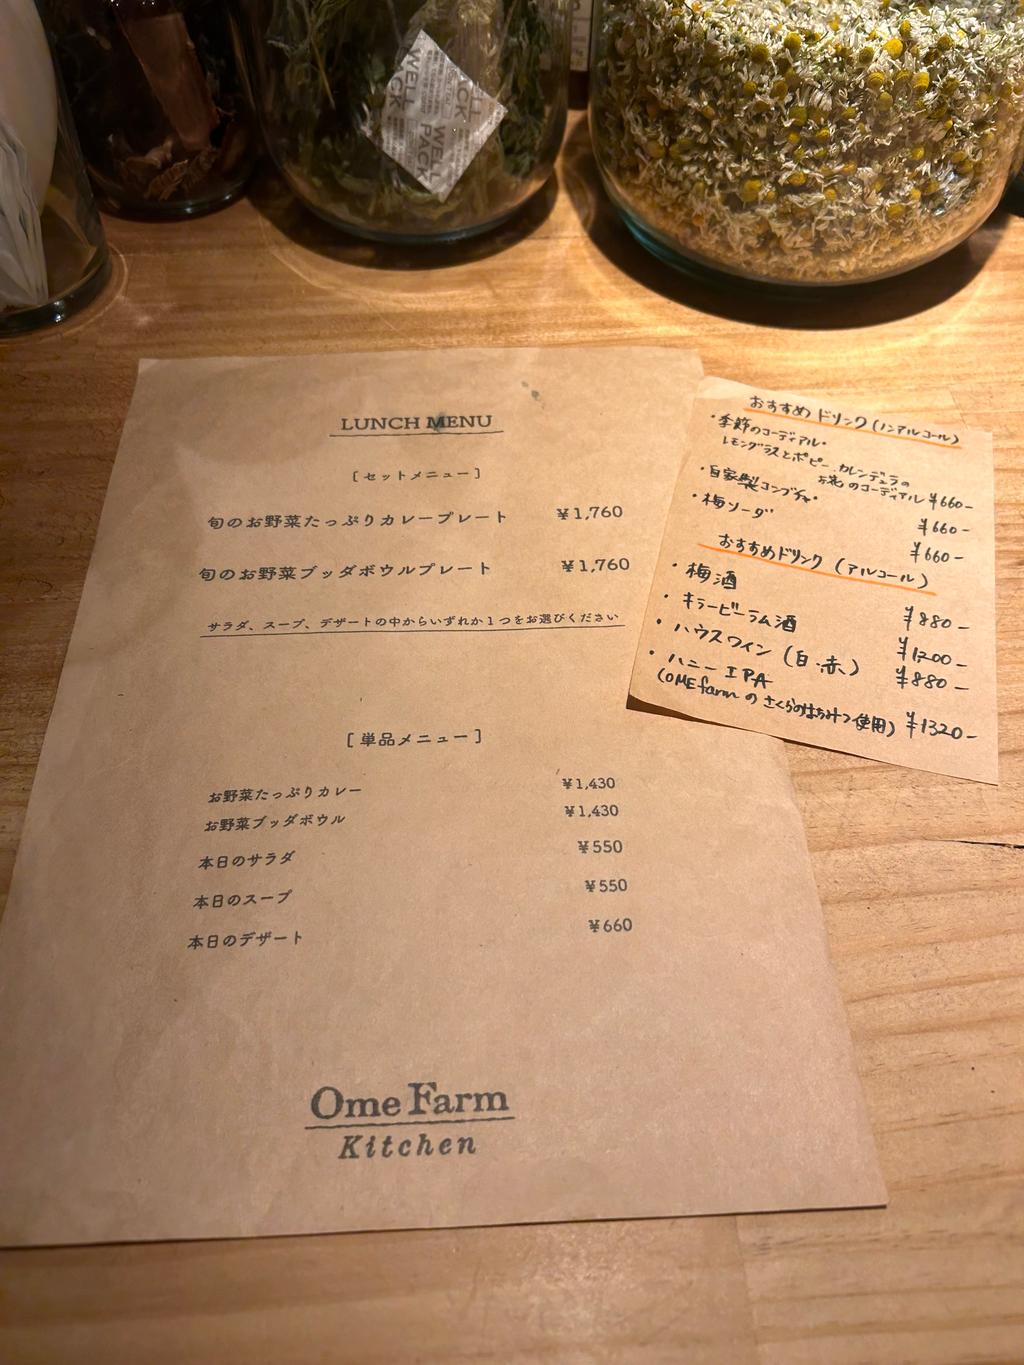 WELL
PACK
LUNCH MENU
[セットメニュー]
旬のお野菜たっぷりカレープレート ¥1,760
旬のお野菜ブッダボウルプレート ¥1,760
サラダ、スープ、デザートの中からいずれか1つをお選びください
[単品メニュー]
お野菜たっぷりカレー ¥1,430
お野菜ブッダボウル ¥1,430
本日のサラダ ¥550
本日のスープ ¥550
本日のデザート ¥660
Ome Farm
Kitchen
おすすめドリンク(ノンアルコール)
・季節のコーディアル・
レモングラスとポピー、カレンデュラの
お花のコーディアル ¥660-
・自家製コンブチャ・ ¥660-
・梅ソーダ ¥660-
おすすめドリンク(アルコール)
・梅酒 ¥880-
・キラービーラム酒 ¥1200-
・ハウスワイン(白・赤) ¥880-
・ハニーIPA
(OME farmのさくらのはちみつ使用) ¥1320-